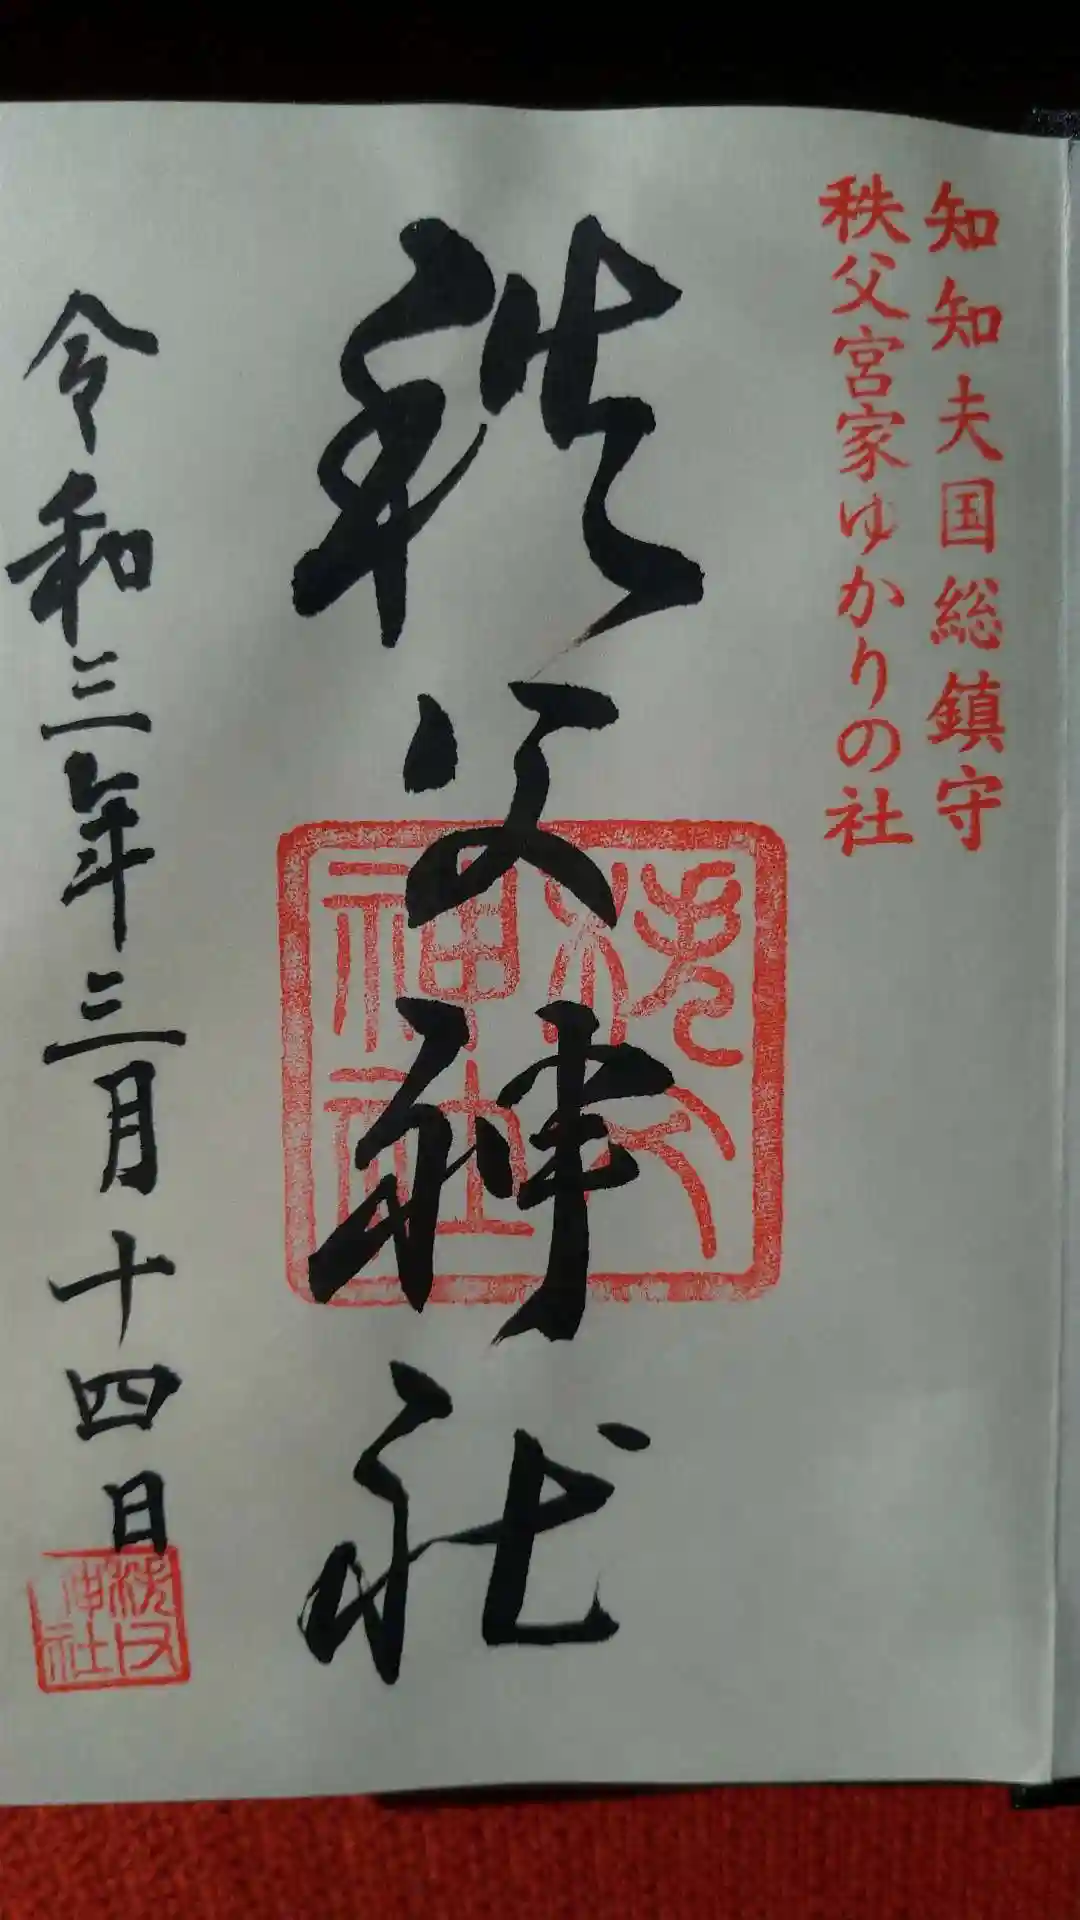 知知夫国総鎮守
秩父宮家ゆかりの社
秩父神社
秩父神社
令和三年三月十四日
秩父神社